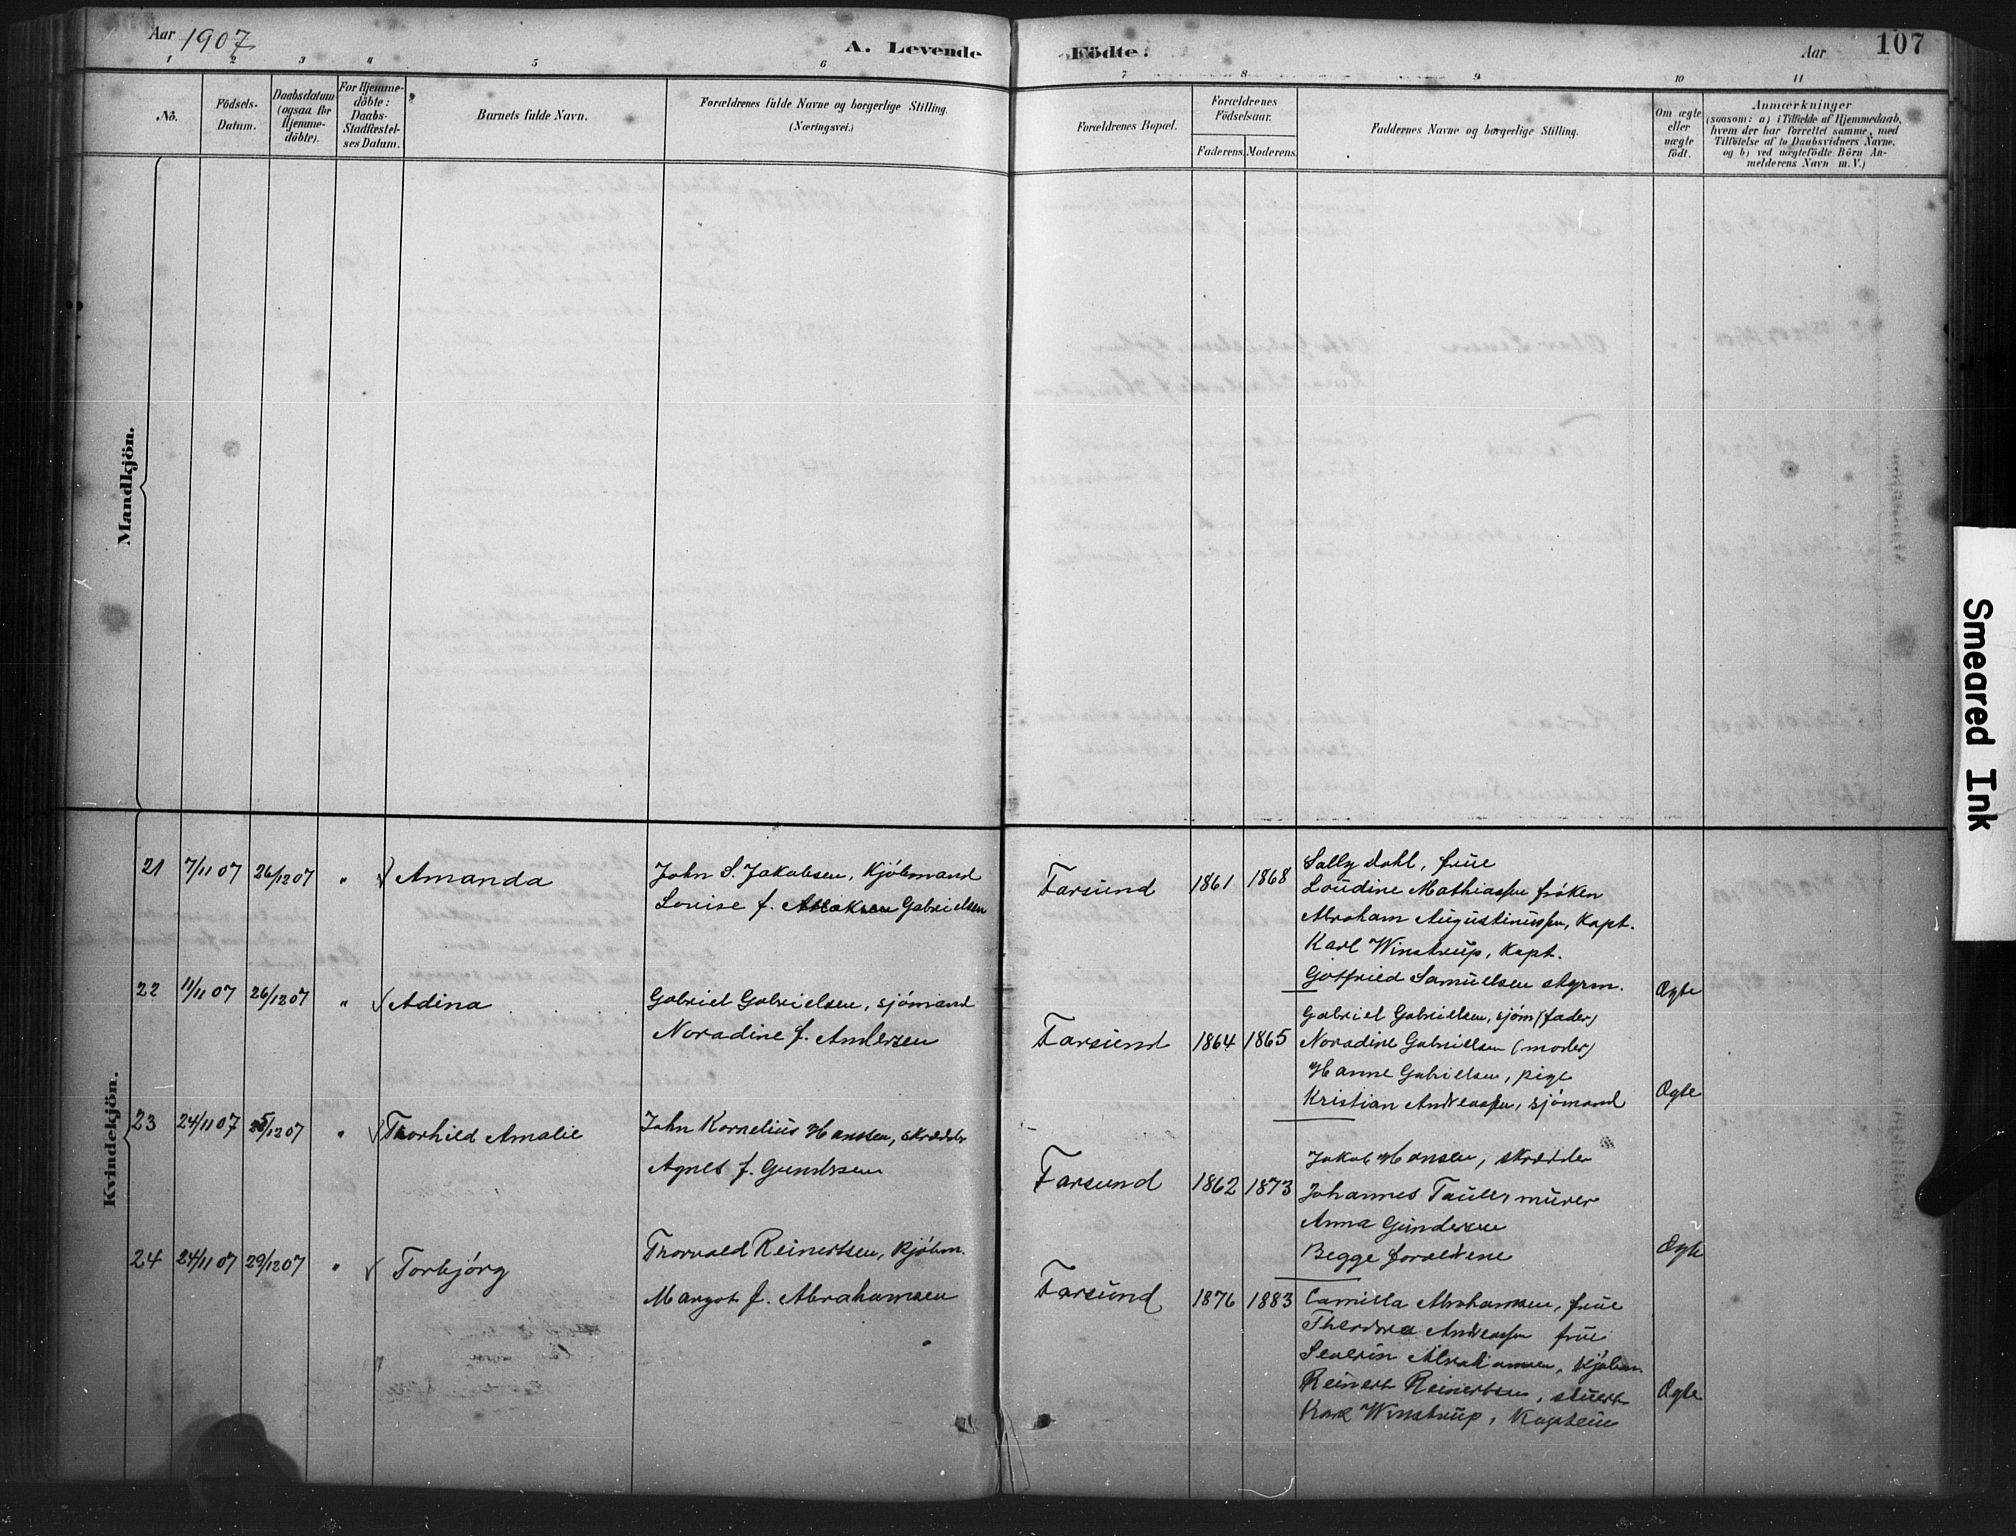 Aar 1907
A. Levende Födte.
Aar
107
1 2 3 4 5 6 7 8 9 10 11
No.
Födsels-
Datum.
Daabsdatum
(ogsaa for
Hjemme-
döbte).
For Hjemme-
döbte:
Daabs-
Stadfæstel-
ses Datum.
Barnets fulde Navn.
Forældrenes fulde Navne og borgerlige Stilling.
(Næringsvei.)
Forældrenes Bopæl.
Forældrenes
Födselsaar.
Faderens. Moderens.
Faddernes Navne og borgerlige Stilling.
Om ægte
eller
uægte
födt.
Anmærkninger
(saasom: a) i Tilfælde af Hjemmedaab,
hvem der har forrettet samme, med
Tilføielse af to Daabsvidners Navne,
og b) ved uægtefödte Börn An-
melderens Navn m. V.)
Mandkjön.
Kvindekjön.
21 7/11 07 26/12 07 " √ Amanda
John S. Jakobsen, Kjöbmand
Louise f. Gabrielsen
Farsund 1861 1868
Sally Dahl, frue
Loudine Mathiassen fröken
Abraham Augustinussen, Kapt.
Karl Winstrup, Kapt.
Gotfried Samuelsen styrm.
Ægte
22 11/11 07 26/12 07 " √ Adina
Gabriel Gabrielsen, sjömand
Noradine f. Andersen
Farsund 1864 1865
Gabriel Gabrielsen, sjöm (fader)
Noradine Gabrielsen (moder)
Hanne Gabrielsen, pige
Kristian Andreassen, sjömand
Ægte
23 24/11 07 25/12 07 " √ Thorhild Amalie
John Kornelius Hansen, skrædder
Agnes f. Gundersen
Farsund 1862 1873
Jakob Hansen, skrædder
Johannes Tauler murer
Anna Gundersen
Begge forældrene
Ægte
24 24/11 07 29/12 07 " √ Torbjörg
Thorvald Reinertsen, Kjöbm.
Margot f. Abrahamsen
Farsund 1876 1883
Camilla Abrahamsen, frue
Theodora Andreassen frue
Severin Abrahamsen, Kjöbm.
Reinert Reinertsen, stuert
Karl Winstrup, Kaptein
Ægte
Smeared Ink